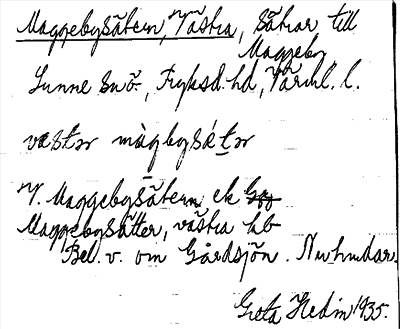 Maggebysätern, Västra, Sätrar till
Maggeby
Sunne sn ö., Fryksd. hd, Värml. l.
västər màgbysǽtər
V. Maggebysätern ek
Maggebysätter, västra hb
Bel. v. om Gårdsjön. Nu hmdsr.
Greta Hedin 1935.